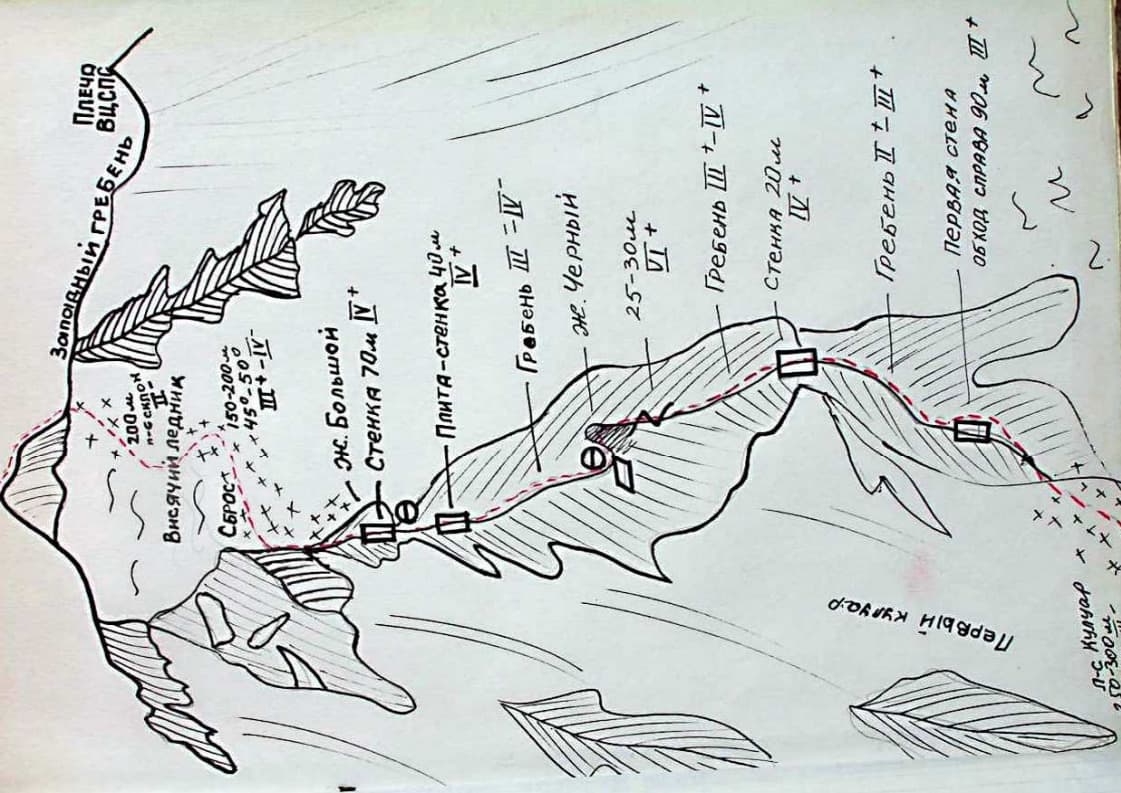 Плечо
ВЦСПС
Западный гребень
200м
л-с склон
II
Висячий ледник
Сброс
150-200м
45°-50°
III+-IV-
Ж. Большой
Стенка 70м IV+
Плита-стенка 40м
IV+
Гребень III-IV-
Ж. Черный
25-30м
VI+
Гребень III+-IV+
Стенка 20м
IV+
Гребень II+-III+
Первая стена
обход справа 90м III+
Первый кулуар
л-с кулуар
250-300м